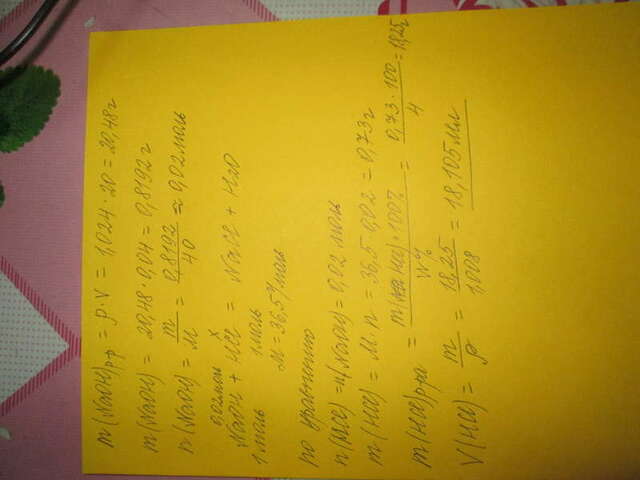 m(NaOH)р-р = ρ·V = 1,024·20 = 20,48г
m(NaOH) = 20,48·0,04 = 0,8192г
n(NaOH) = m/M = 0,8192/40 = 0,02моль
0,02моль x
NaOH + HCl = NaCl + H2O
1моль 1моль
M = 36,5г/моль
по уравнению
n(HCl) = n(NaOH) = 0,02 моль
m(HCl) = M·n = 36,5·0,02 = 0,73г
m(HCl)р-ра = m(HCl)·100%/W% = 0,73·100/4 = 18,25г
V(HCl) = m/ρ = 18,25/1,008 = 18,105мл